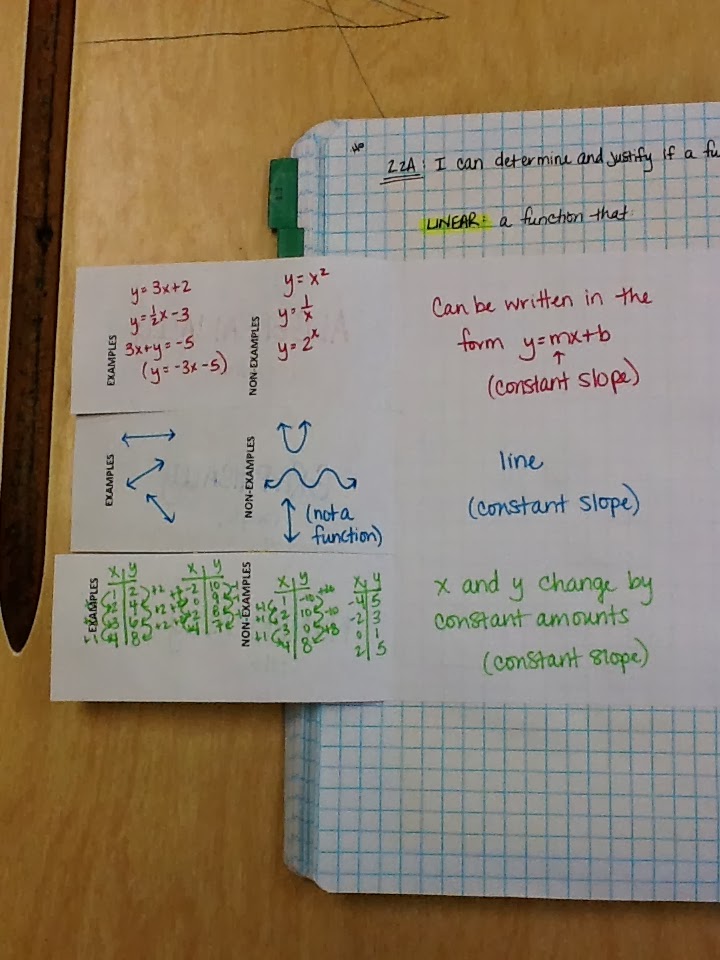 22A: I can determine and justify if a fu
LINEAR: a function that
EXAMPLES
y = 3x+2
y = ½x - 3
3x+y = -5
(y = -3x-5)
NON-EXAMPLES
y = x²
y = 1/x
y = 2ˣ
Can be written in the
form y=mx+b
↑
(constant slope)
EXAMPLES
NON-EXAMPLES
(not a
function)
line
(constant slope)
EXAMPLES
x y
1 2
2 4
3 6
4 8
+2
+2
+2
x y
-2 10
NON-EXAMPLES
x y
1
2 10
3 0
4 8
x y
-4 5
-2 3
0 1
2 5
x and y change by
constant amounts
(constant slope)